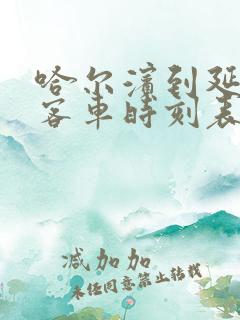 哈尔滨到延
客车时刻表
减加加
未经同意禁止转载